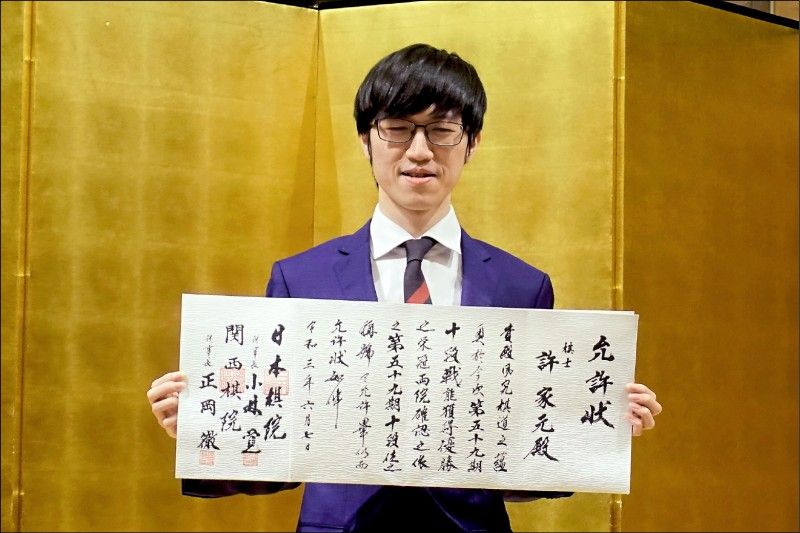 允許状
棋士
許家元殿
貴殿夙究棋道之蘊
奥於今次第五十九期
十段戦能獲得優勝
之栄冠両院確認之依
之第五十九期十段位之
称號令允許畢仍而
允許状如件
令和三年六月七日
日本棋院
理事長 小林覚
関西棋院
理事長 正岡徹